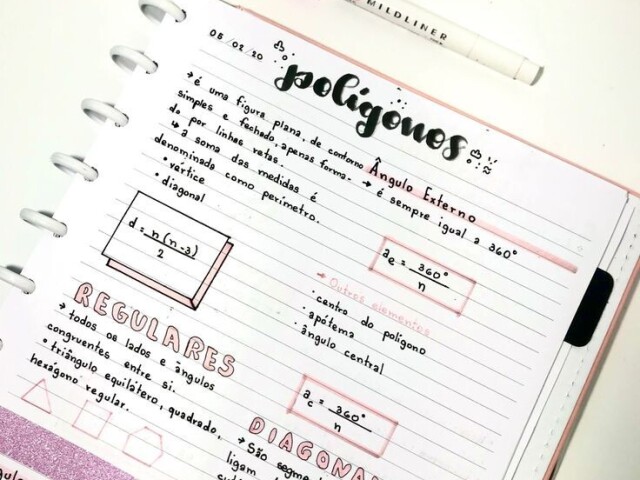 MILDLINER
05/02/20
polígonos
→ é uma figura plana, de contorno
simples e fechado, apenas forma-
do por linhas retas.
↳ a soma das medidas é
denominada como perímetro.
• vértice
• diagonal
d = n(n-3)
2
REGULARES
→ todos os lados e ângulos
congruentes entre si.
• triângulo equilátero, quadrado,
hexágono regular.
Ângulo Externo
→ é sempre igual a 360°
ae = 360°
n
→ Outros elementos
• centro do polígono
• apótema
• ângulo central
ac = 360°
n
DIAGONA
→ São segme
ligam